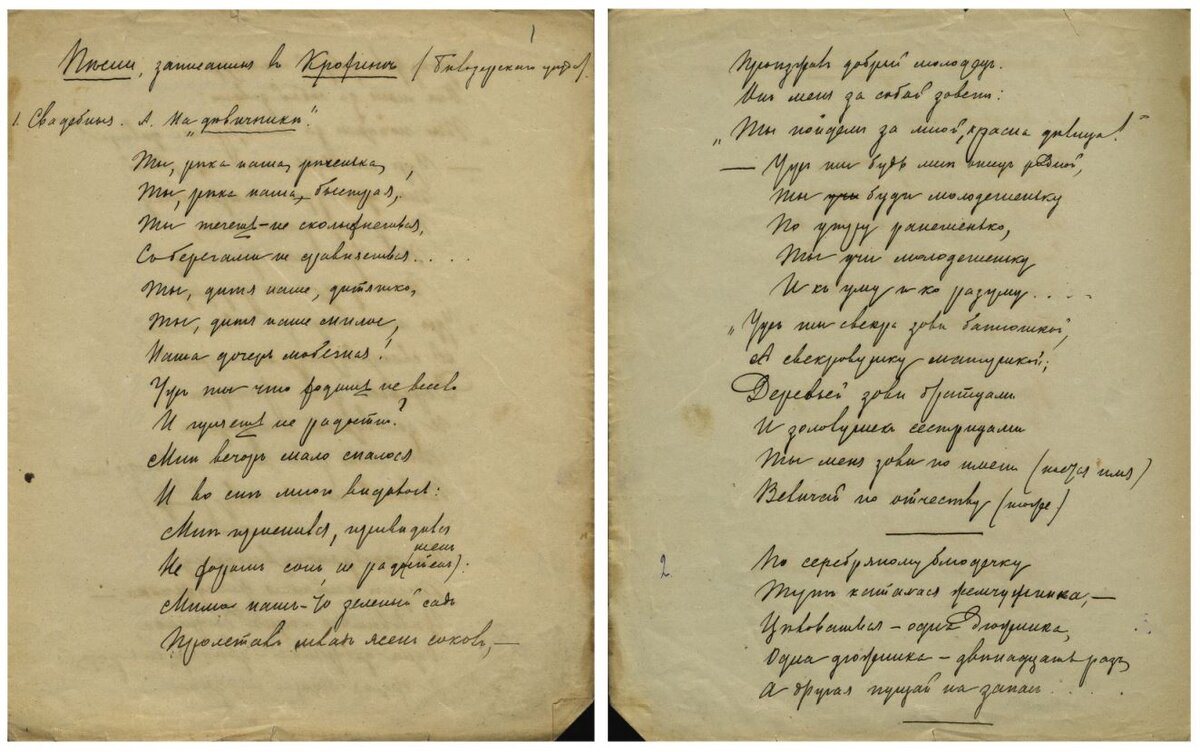 1
Пѣсни, записанныя въ Крохинѣ (Бѣлозерскаго уѣзда).
1. Свадебныя. А. На „дѣвичники".
Ты, рѣка наша, рѣченька,
Ты, рѣка наша, быстрая,
Ты течешь - не сколыхнешься,
Съ берегами не сравняешься....
Ты, дитя наше, дитятко,
Ты, дитя наше милое,
Наша дочерь любезная!
Ужъ ты что ходишь не весело
И гуляешь не радостна?
Мнѣ вечоръ мало спалося
И во снѣ много видѣлось:
Мнѣ приснился, привидѣлся
Не хорошъ сонъ, не радошенъ
Мимо нашъ-то зеленый садъ
Пролеталъ младъ ясенъ соколъ, —
Проѣзжалъ добрый молодецъ.
Онъ меня за собой зоветъ:
„Ты пойдемъ за мной, красна дѣвица!"
— Ужъ ты будь мнѣ отецъ родной,
Ты учи буди молодешеньку
По утру ранешенько,
Ты учи молодешеньку
И къ уму и ко разуму....
„Ужъ ты свекра зови батюшкой,
А свекровушку матушкой;
Деверьей зови братцами
И золовушекъ сестрицами
Ты меня зови по имени
Величай по отчеству (тоже)
2
По серебряному блюдечку
Тутъ каталася жемчужинка, —
Цѣловаться - одна дюжинка,
Одна дюжинка - двѣнадцать разъ,
А другая пущай на запасъ....